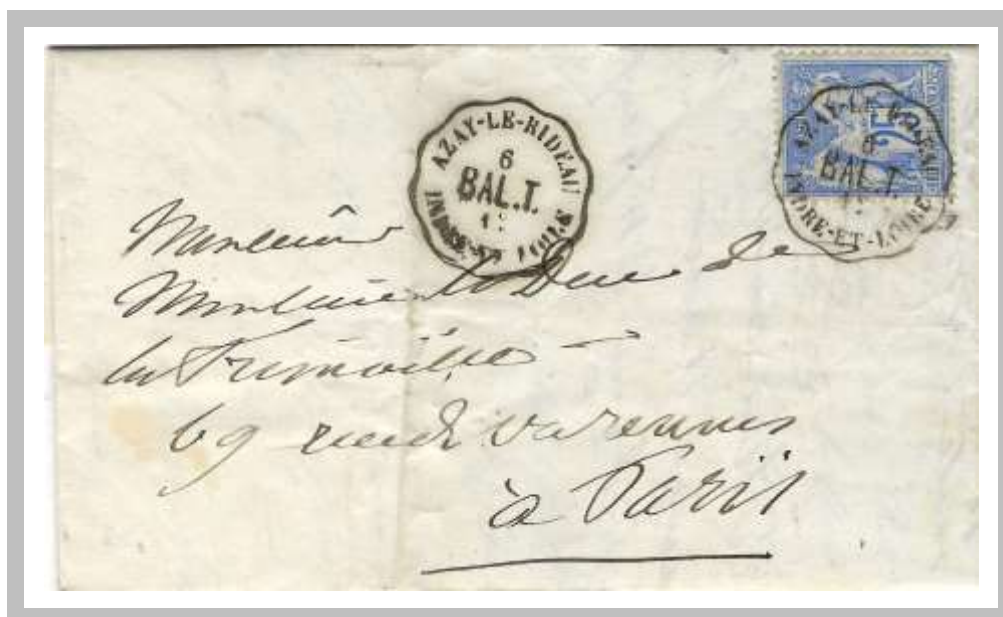 AZAY-LE-RIDEAU
6
BAL.T.
INDRE-ET-LOIRE
25
AZAY-LE-RIDEAU
6
BAL.T.
INDRE-ET-LOIRE
Monsieur
Monsieur le Duc de
la Trimoille
69 rue de Varennes
à Paris